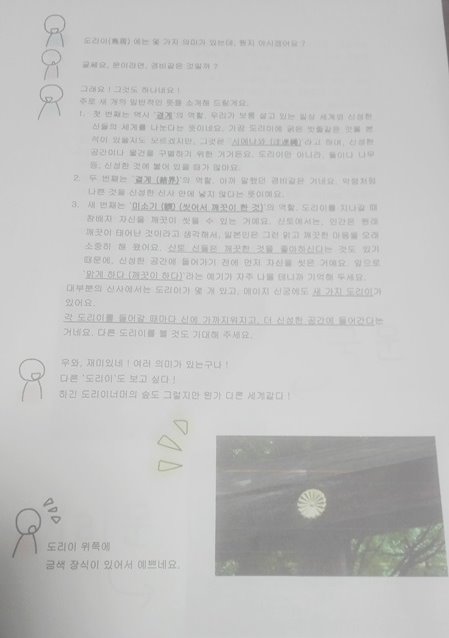 도리이(鳥居) 에는 몇 가지 의미가 있는데, 뭔지 아시겠어요 ?
글쎄요. 문이라면, 경비같은 것일까 ?
그래요 ! 그것도 하나네요 !
주로 세 개의 일반적인 뜻을 소개해 드릴게요.
1. 첫 번째는 역시 '결계'의 역할. 우리가 보통 살고 있는 일상 세계와 신성한
신들의 세계를 나눈다는 뜻이네요. 가끔 도리이에 굵은 밧줄같은 것을 본
적이 있을지도 모르겠지만, 그것은 '시메나와 (注連縄)'라고 하며, 신성한
공간이나 물건을 구별하기 위한 거거든요. 도리이만 아니라, 돌이나 나무
등, 신성한 것에 붙어 있을 때가 많아요.
2. 두 번째는 '결계 (結界)'의 역할. 아까 말했던 경비같은 거네요. 악령처럼
나쁜 것을 신성한 신사 안에 넣지 않다는 뜻이예요.
3. 세 번째는 '미소기 (禊) (씻어서 깨끗이 한 것)'의 역할. 도리이를 지나갈 때
참배자 자신을 깨끗이 씻을 수 있는 거예요. 신토에서는, 인간은 원래
깨끗이 태어난 것이라고 생각해서, 일본인은 그런 맑고 깨끗한 마음을 오래
소중히 해 왔어요. 신토 신들은 깨끗한 것을 좋아하신다는 것도 있기
때문에, 신성한 공간에 들어가기 전에 먼저 자신을 씻은 거예요. 앞으로
'맑게 하다 (깨끗이 하다)'라는 얘기가 자주 나올 테니까 기억해 두세요.
대부분의 신사에서는 도리이가 몇 개 있고, 메이지 신궁에도 세 가지 도리이가
있어요.
각 도리이를 들어갈 때마다 신에 가까지워지고, 더 신성한 공간에 들어간다는
거네요. 다른 도리이를 볼 것도 기대해 주세요.
우와, 재미있네 ! 여러 의미가 있는구나 !
다른 '도리이'도 보고 싶다 !
하긴 도리이너머의 숲도 그렇지만 뭔가 다른 세계같다 !
도리이 위쪽에
금색 장식이 있어서 예쁘네요.